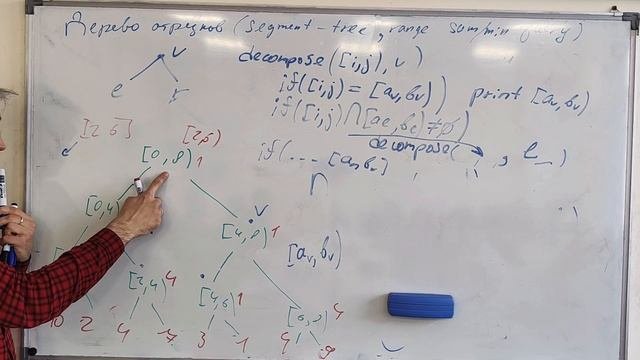 Дерево отрезков (segment-tree, range sum/min query)
v
decompose([i,j), v)
e r
if([i,j) = [av, bv)) print [av, bv)
if([i,j) ∩ [ae, be) ≠ ∅)
decompose( , e_)
[2 5] [2,5)
[0,8) 1
if(... [ar, br)
∩
[0,4)
v
[4,8) 1
[av, bv)
[2,4) 4
[4,6) 1
[6,8) 4
10 2 4 7 3 1 4 9